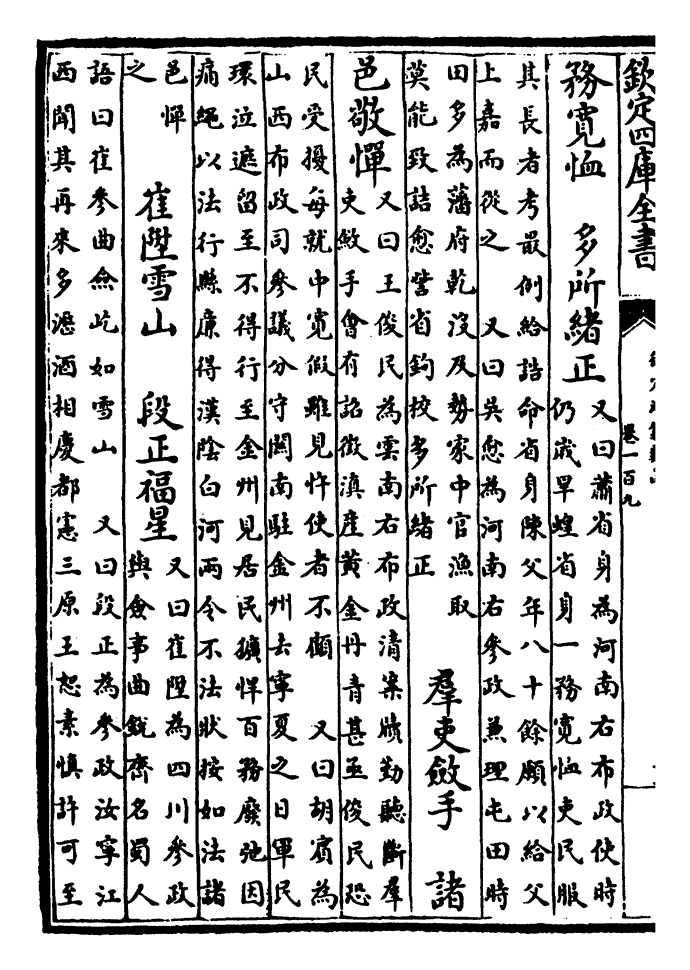 欽定四庫全書
卷一百九
務寬恤　多所緒正
又曰蕭省身為河南右布政使時
仍歲旱蝗省身一務寬恤吏民服
其長者考最例給誥命省身陳父年八十餘願以給父
上嘉而從之　又曰吳愈為河南右參政兼理屯田時
田多為藩府乾沒及勢家中官漁取
莫能致詰愈嘗省鉤校多所緒正
羣吏斂手　諸
邑敬憚
又曰王俊民為雲南右布政清案牘勤聽斷羣
吏斂手會有詔徵滇産黃金丹青甚亟俊民恐
民受擾每就中寬假雖見忤使者不顧　又曰胡賓為
山西布政司參議分守關南駐金州去寧夏之日軍民
環泣遮留至不得行至金州見居民獷悍百務廢弛因
痛繩以法行縣廉得漢陰白河兩令不法狀按如法諸
邑憚
之
崔陞雪山　段正福星
又曰崔陞為四川參政
與僉事曲銳齊名蜀人
語曰崔參曲僉屹如雪山　又曰段正為參政汝寧江
西聞其再來多灑酒相慶都憲三原王恕素慎許可至